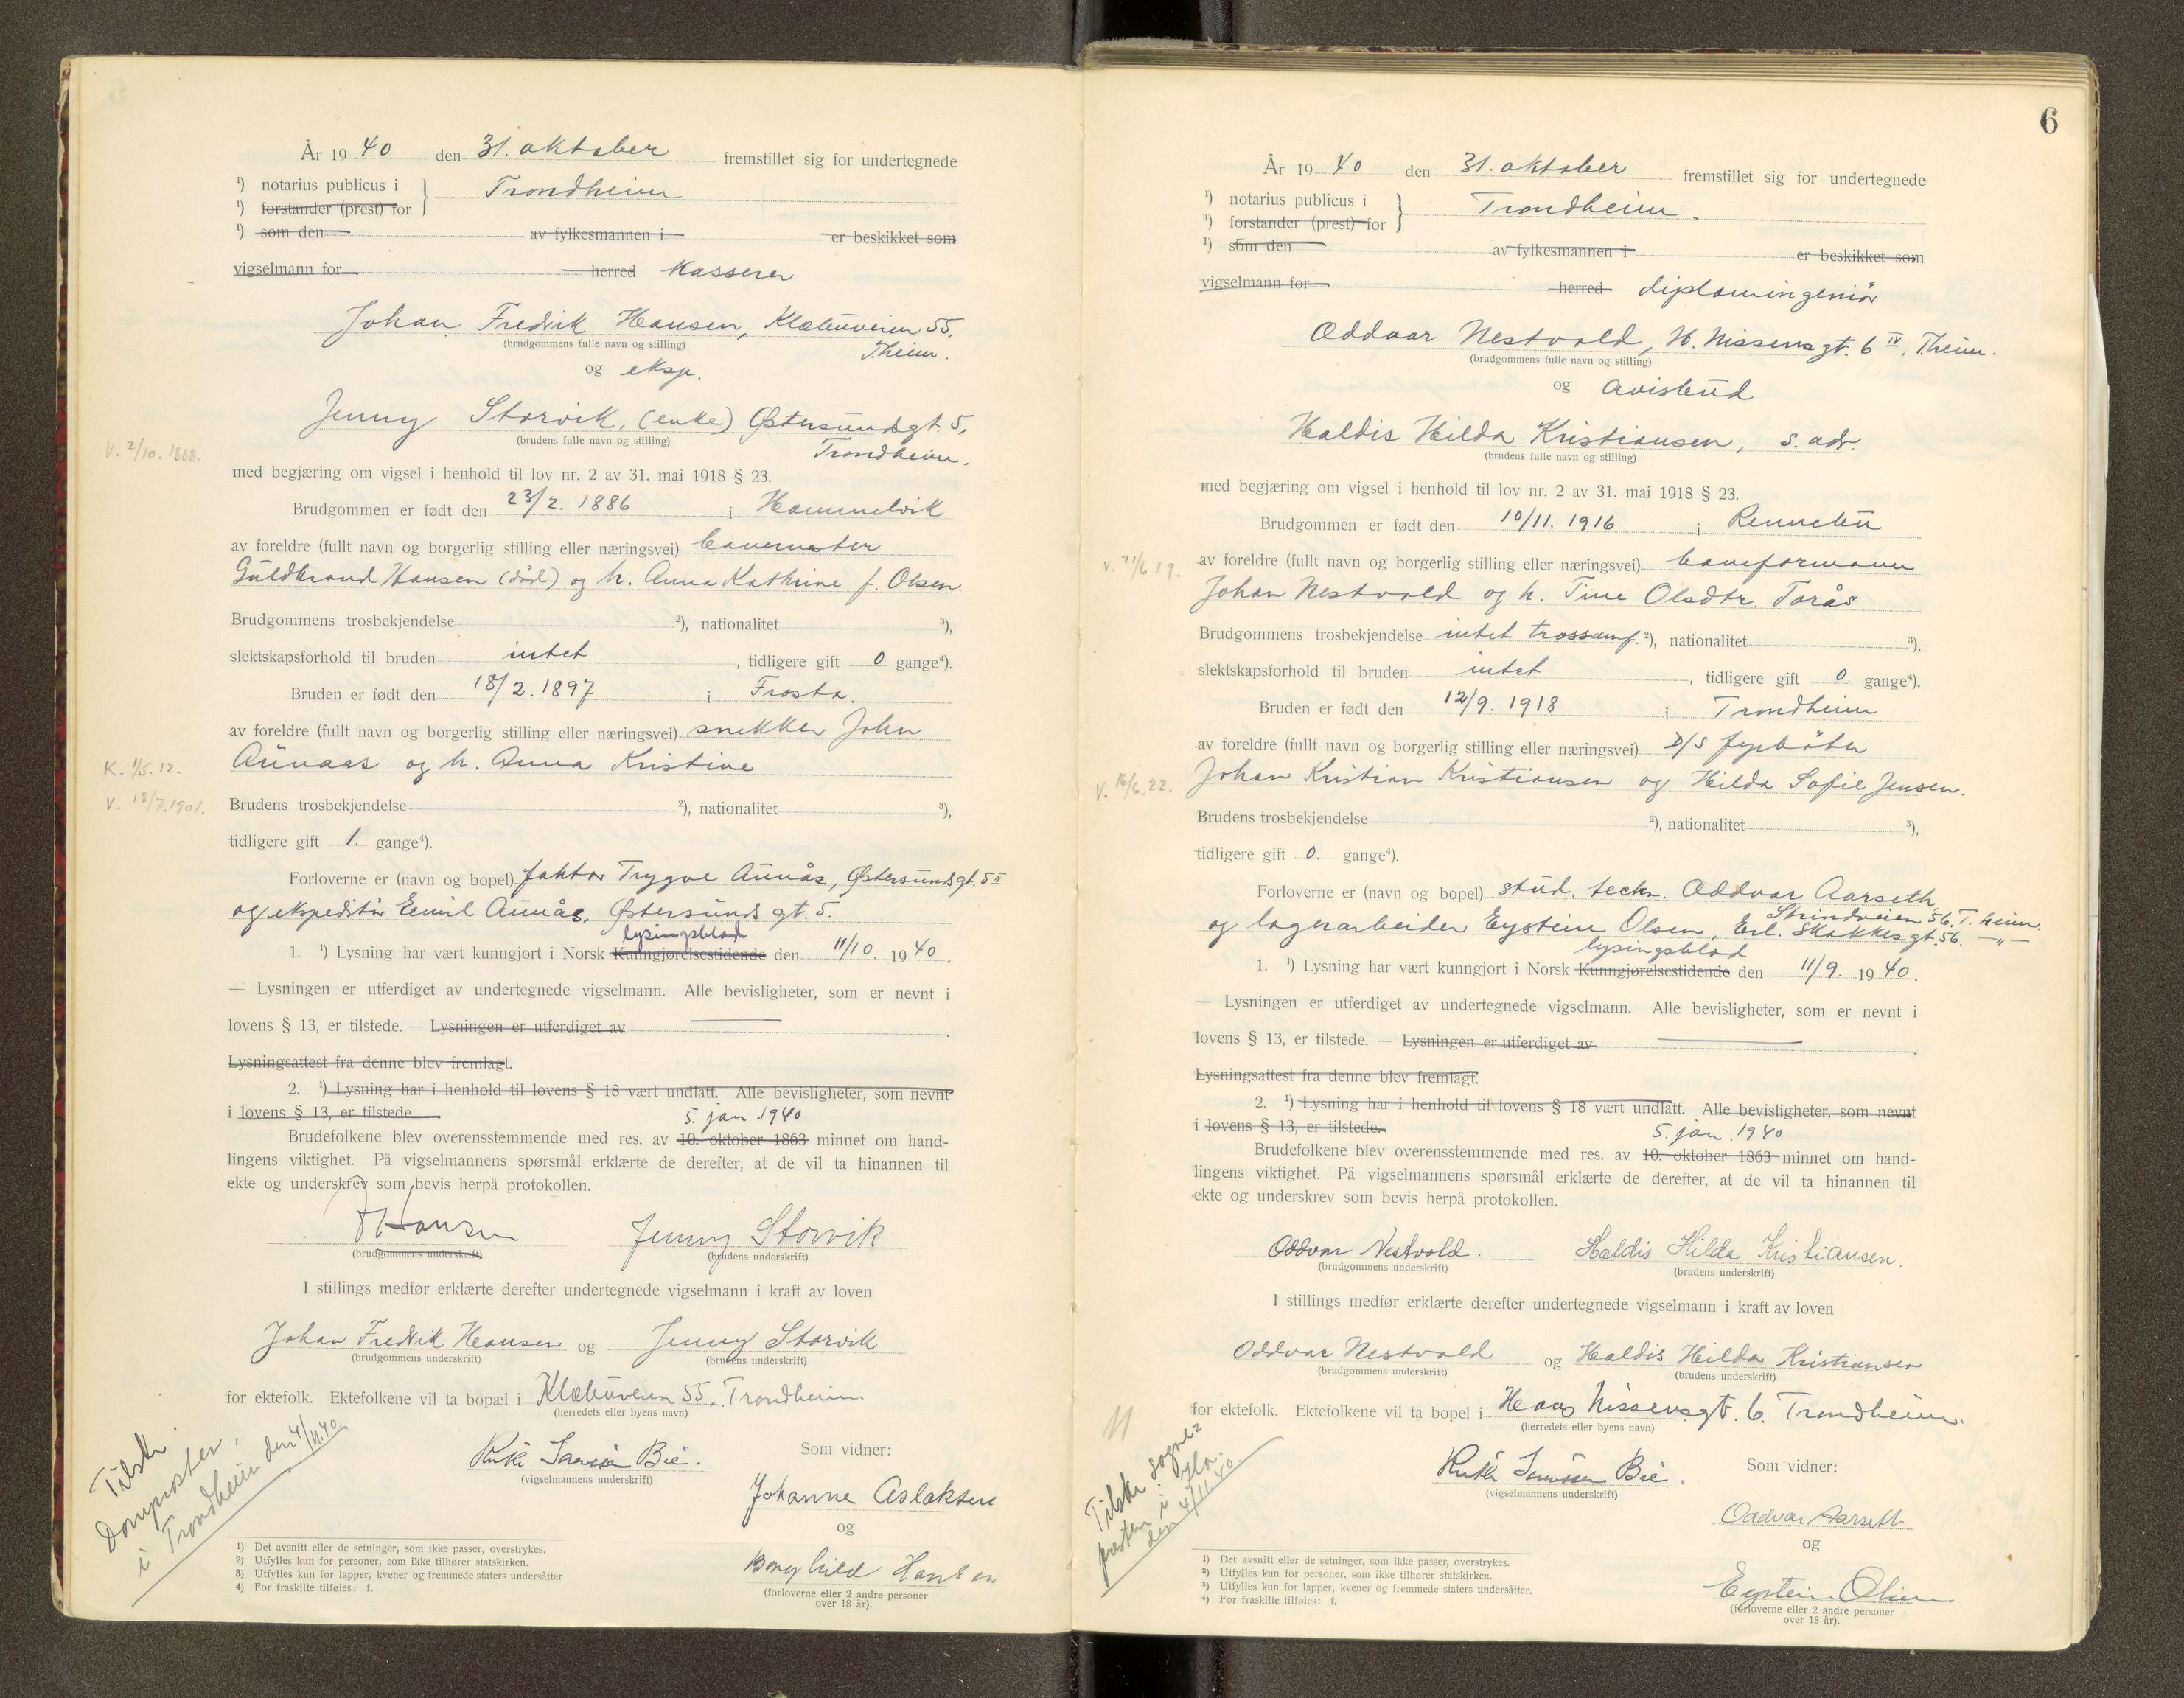 År 1940 den 31. oktober fremstillet sig for undertegnede
1) notarius publicus i Trondheim
1) forstander (prest) for
1) som den av fylkesmannen i er beskikket som
vigselmann for herred kasserer
Johan Fredrik Hansen, Klæbuveien 55,
(brudgommens fulle navn og stilling)
T.heim.
og eksp.
Jenny Storvik, (enke) Østersundsgt. 5,
(brudens fulle navn og stilling)
Trondheim.
V. 2/10. 1888.
med begjæring om vigsel i henhold til lov nr. 2 av 31. mai 1918 § 23.
Brudgommen er født den 23/2. 1886 i Hommelvik
av foreldre (fullt navn og borgerlig stilling eller næringsvei) banemester
Guldbrand Hansen (død) og h. Anna Kathrine f. Olsen.
Brudgommens trosbekjendelse 2), nationalitet 3),
slektskapsforhold til bruden intet, tidligere gift 0 gange4).
Bruden er født den 18/2. 1897 i Frosta.
av foreldre (fullt navn og borgerlig stilling eller næringsvei) snekker John
Aunaas og h. Anna Kristine
K. 1/5. 12.
V. 18/7. 1901.
Brudens trosbekjendelse 2), nationalitet 3),
tidligere gift 1. gange4).
Forloverne er (navn og bopel) faktor Trygve Aunås, Østersundsgt. 5 II
og ekspeditør Emil Aunås, Østersunds gt. 5.
lysingsblad
1. 1) Lysning har vært kunngjort i Norsk Kunngjørelsestidende den 11/10. 1940.
— Lysningen er utferdiget av undertegnede vigselmann. Alle bevisligheter, som er nevnt i
lovens § 13, er tilstede. — Lysningen er utferdiget av
Lysningsattest fra denne blev fremlagt.
2. 1) Lysning har i henhold til lovens § 18 vært undlatt. Alle bevisligheter, som nevnt
i lovens § 13, er tilstede
5. jan 1940
Brudefolkene blev overensstemmende med res. av 10. oktober 1863 minnet om hand-
lingens viktighet. På vigselmannens spørsmål erklærte de derefter, at de vil ta hinannen til
ekte og underskrev som bevis herpå protokollen.
Hansen Jenny Storvik
(brudgommens underskrift) (brudens underskrift)
I stillings medfør erklærte derefter undertegnede vigselmann i kraft av loven
Johan Fredrik Hansen og Jenny Storvik
(brudgommens underskrift) (brudens underskrift)
for ektefolk. Ektefolkene vil ta bopæl i Klæbuveien 55, Trondheim
(herredets eller byens navn)
Tilskr.
Domprosten,
i Trondheim den 4/11.40.
Som vidner:
Ruth Bie.
(vigselmannens underskrift)
Johanne Aslaksen
og
Borghild Hansen
(forloverne eller 2 andre personer
over 18 år).
1) Det avsnitt eller de setninger, som ikke passer, overstrykes.
2) Utfylles kun for personer, som ikke tilhører statskirken.
3) Utfylles kun for lapper, kvener og fremmede staters undersåtter
4) For fraskilte tilføies: f.
6
År 1940 den 31. oktober fremstillet sig for undertegnede
1) notarius publicus i Trondheim.
1) forstander (prest) for
1) som den av fylkesmannen i er beskikket som
vigselmann for herred diplomingeniør
Oddvar Nestvold, H. Nissensgt. 6 IV, T.heim.
(brudgommens fulle navn og stilling)
og avisbud
Haldis Hilda Kristiansen, s. adr.
(brudens fulle navn og stilling)
med begjæring om vigsel i henhold til lov nr. 2 av 31. mai 1918 § 23.
Brudgommen er født den 10/11. 1916 i Rennebu
V. 21/6 19.
av foreldre (fullt navn og borgerlig stilling eller næringsvei) baneformann
Johan Nestvold og h. Tine Olsdtr. Torås
Brudgommens trosbekjendelse intet trossamf. 2), nationalitet 3),
slektskapsforhold til bruden intet, tidligere gift 0. gange4).
Bruden er født den 12/9. 1918 i Trondheim
av foreldre (fullt navn og borgerlig stilling eller næringsvei) D/S fyrbøter
V. 16/6. 22.
Johan Kristian Kristiansen og Hilda Sofie Jensen.
Brudens trosbekjendelse 2), nationalitet 3),
tidligere gift 0. gange4).
Forloverne er (navn og bopel) stud. techn. Oddvar Aarseth,
Strindveien 56, T.heim.
og lagerarbeider Eystein Olsen, Erl. Skakkes gt. 56. — " —
lysingsblad
1. 1) Lysning har vært kunngjort i Norsk Kunngjørelsestidende den 11/9. 1940.
— Lysningen er utferdiget av undertegnede vigselmann. Alle bevisligheter, som er nevnt i
lovens § 13, er tilstede. — Lysningen er utferdiget av
Lysningsattest fra denne blev fremlagt.
2. 1) Lysning har i henhold til lovens § 18 vært undlatt. Alle bevisligheter, som nevnt
i lovens § 13, er tilstede.
5. jan. 1940
Brudefolkene blev overensstemmende med res. av 10. oktober 1863 minnet om hand-
lingens viktighet. På vigselmannens spørsmål erklærte de derefter, at de vil ta hinannen til
ekte og underskrev som bevis herpå protokollen.
Oddvar Nestvold. Haldis Hilda Kristiansen.
(brudgommens underskrift) (brudens underskrift)
I stillings medfør erklærte derefter undertegnede vigselmann i kraft av loven
Oddvar Nestvold og Haldis Hilda Kristiansen
(brudgommens underskrift) (brudens underskrift)
for ektefolk. Ektefolkene vil ta bopel i Hans Nissensgt. 6. Trondheim.
(herredets eller byens navn)
Tilskr. sogne-
presten i Ila.
den 4/11.40.
Som vidner:
Ruth Bie.
(vigselmannens underskrift)
Oddvar Aarseth
og
Eystein Olsen
(forloverne eller 2 andre personer
over 18 år).
1) Det avsnitt eller de setninger, som ikke passer, overstrykes.
2) Utfylles kun for personer, som ikke tilhører statskirken.
3) Utfylles kun for lapper, kvener og fremmede staters undersåtter.
4) For fraskilte tilføies: f.